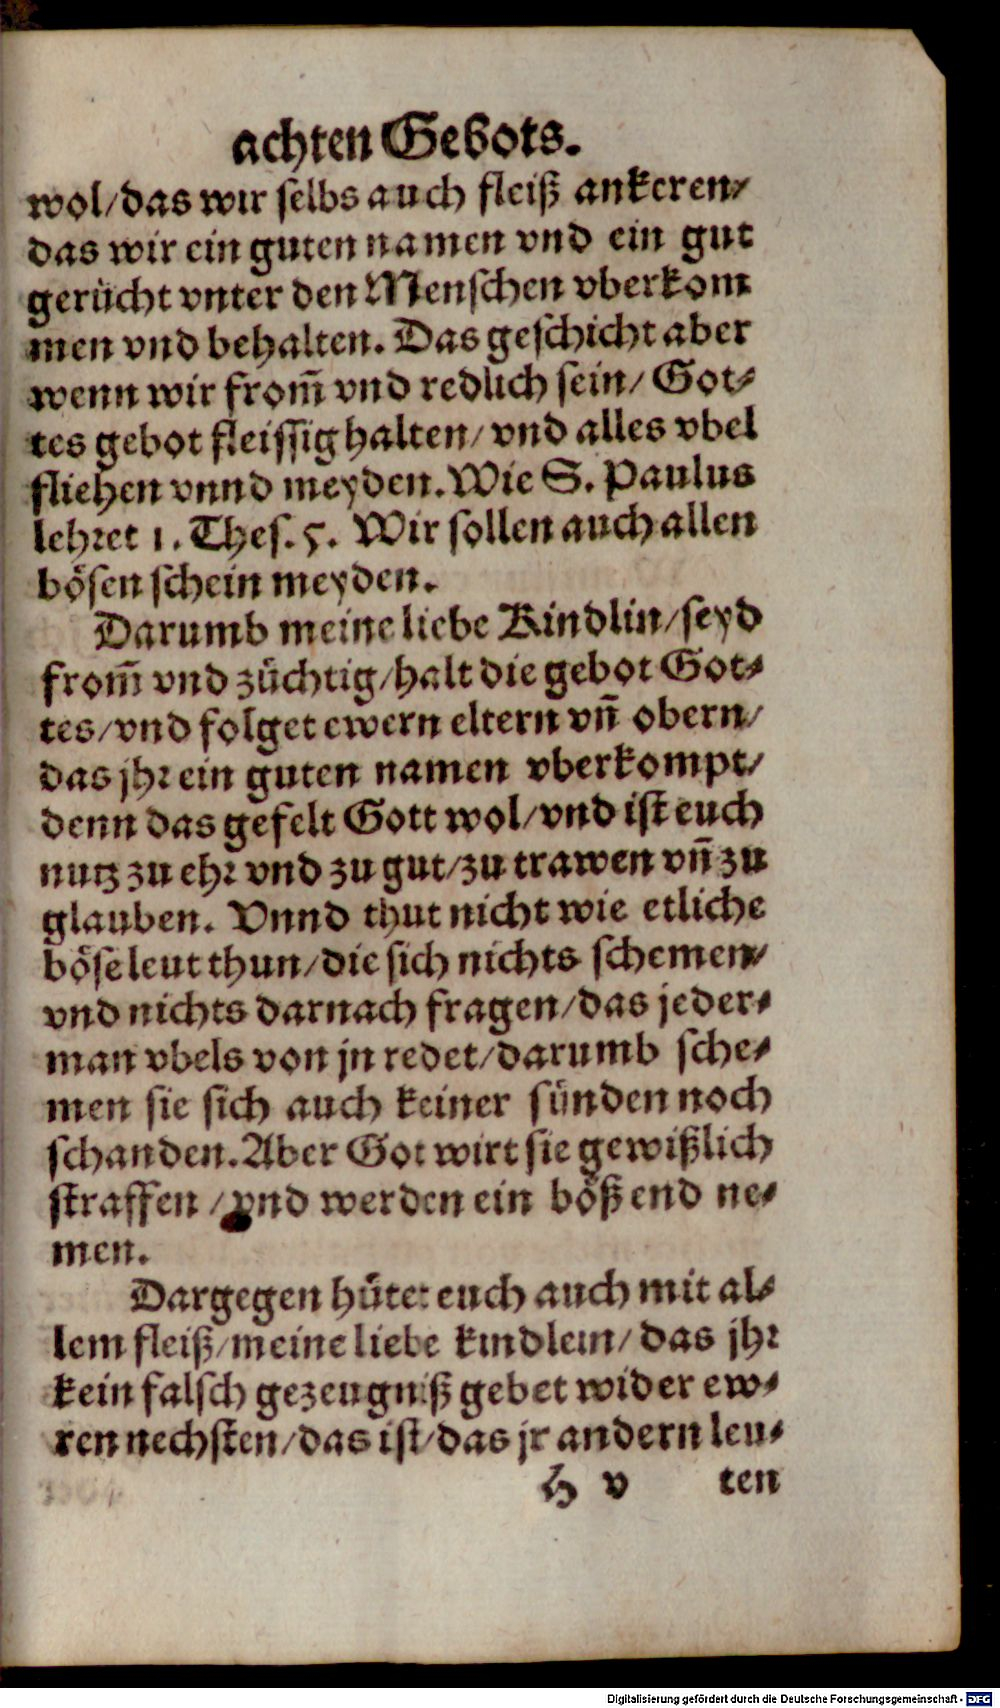 achten Gebots.
wol/das wir selbs auch fleiß ankeren/
das wir ein guten namen vnd ein gut
gerücht vnter den Menschen vberkom
men vnd behalten. Das geschicht aber
wenn wir from̄ vnd redlich sein/ Got⸗
tes gebot fleissig halten/ vnd alles vbel
fliehen vnnd meyden. Wie S. Paulus
lehret 1. Thes. 5. Wir sollen auch allen
bösen schein meyden.
Darumb meine liebe Kindlin/seyd
from̄ vnd züchtig/halt die gebot Got⸗
tes/vnd folget ewern eltern vn̄ obern/
das jhr ein guten namen vberkompt/
denn das gefelt Gott wol/vnd ist euch
nutz zu ehr vnd zu gut/zu trawen vn̄ zu
glauben. Vnnd thut nicht wie etliche
böse leut thun/die sich nichts schemen/
vnd nichts darnach fragen/das jeder⸗
man vbels von jn redet/darumb sche⸗
men sie sich auch keiner sünden noch
schanden. Aber Got wirt sie gewißlich
straffen /vnd werden ein böß end ne⸗
men.
Dargegen hütet euch auch mit al⸗
lem fleiß/meine liebe kindlein/ das jhr
kein falsch gezeugniß gebet wider ew⸗
ren nechsten/das ist/das jr andern leu⸗
H v ten
Digitalisierung gefördert durch die Deutsche Forschungsgemeinschaft - DFG